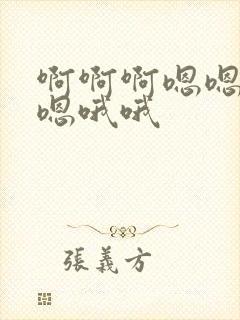 啊啊啊嗯嗯
嗯哦哦
張義方